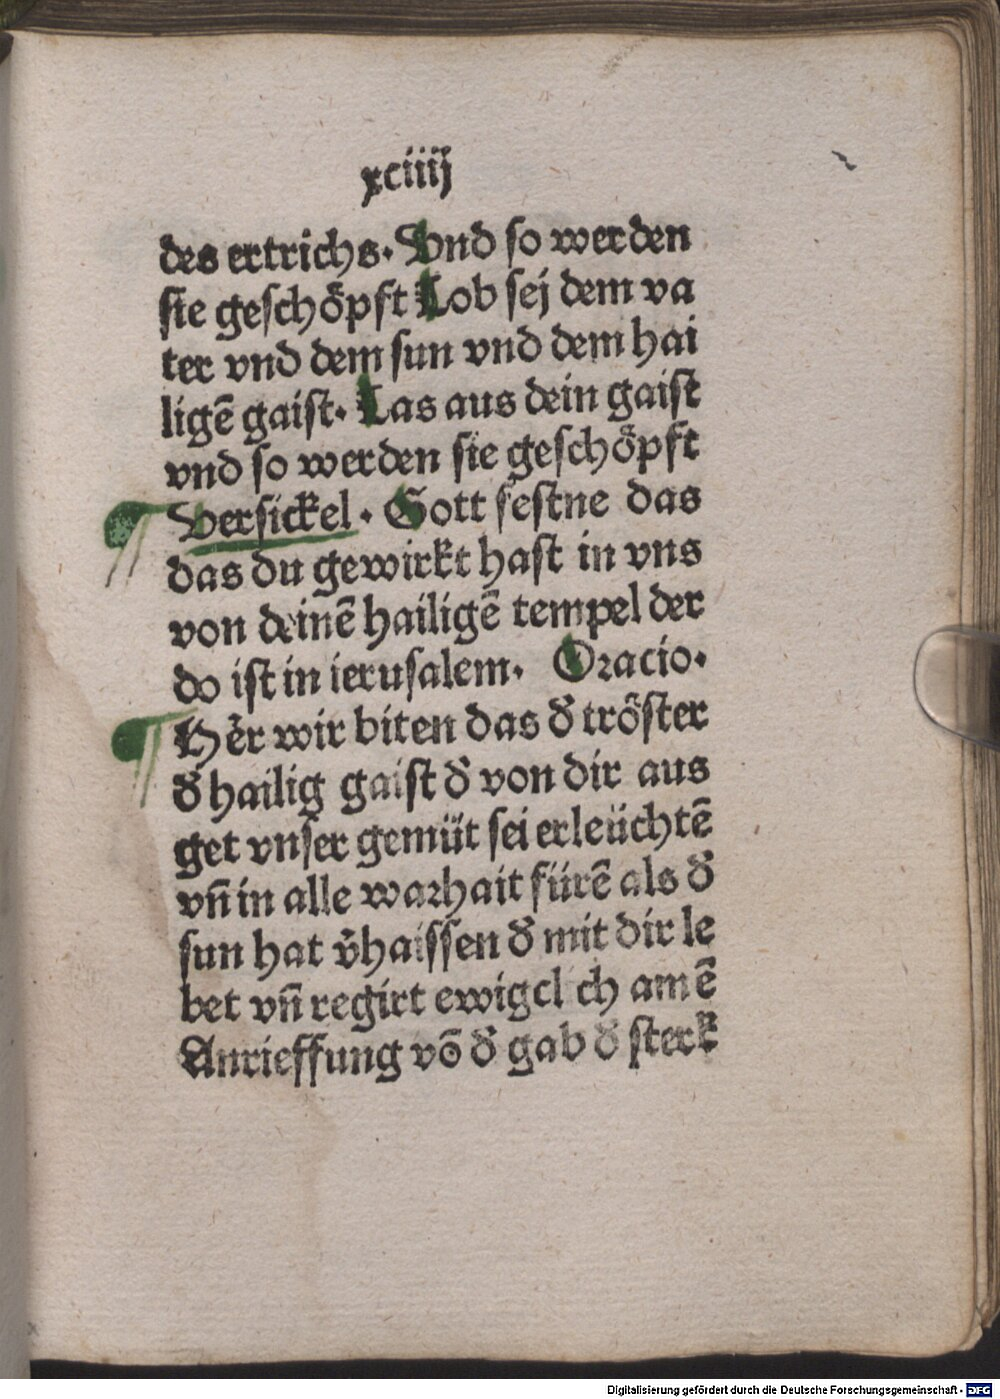 xciiij
des ertrichs. Vnd so werden
sie geschöpft Lob sej dem va
ter vnd dem sun vnd dem hai
ligē gaist. Las aus dein gaist
vnd so werden sie geschöpft
Versickel. Gott festne das
das du gewirkt hast in vns
von deinē hailigē tempel der
do ist in ierusalem. Oracio.
Hēr wir biten das d̄ tröster
d̄ hailig gaist d̄ von dir aus
get vnser gemüt sei erleüchtē
vn̄ in alle warhait fürē als d̄
sun hat v̄haissen d̄ mit dir le
bet vn̄ regirt ewigclich amē
Anrieffung vō d̄ gab d̄ sterk
Digitalisierung gefördert durch die Deutsche Forschungsgemeinschaft - DFG